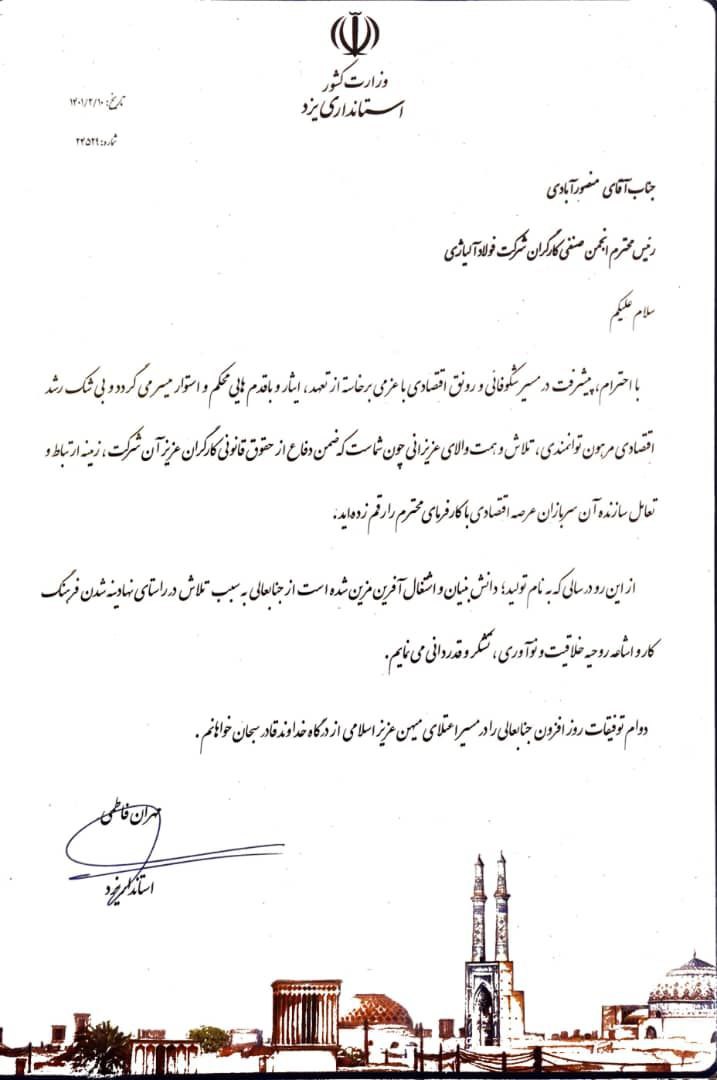 وزارت کشور
استانداری یزد
تاریخ: ۱۴۰۱/۲/۱۰
شماره: ۲۴۵۲۹
جناب آقای منصورآبادی
رئیس محترم انجمن صنفی کارگران شرکت فولاد آلیاژی
سلام علیکم
با احترام، پیشرفت در مسیر شکوفائی و رونق اقتصادی با عزمی برخاسته از تعهد، ایثار و باقدم هایی محکم و استوار میسر می گردد و بی شک رشد
اقتصادی مرهون توانمندی، تلاش و همت والای عزیزانی چون شماست که ضمن دفاع از حقوق قانونی کارگران عزیز آن شرکت، زمینه ارتباط و
تعامل سازنده آن سربازان عرصه اقتصادی با کارفرمای محترم را رقم زده اید.
از این رو در سالی که به نام تولید؛ دانش بنیان و اشتغال آفرین مزین شده است از جنابعالی به سبب تلاش در راستای نهادینه شدن فرهنگ
کار و اشاعه روحیه خلاقیت و نوآوری، تشکر و قدردانی می نمایم.
دوام توفیقات روز افزون جنابعالی را در مسیر اعتلای میهن عزیز اسلامی از درگاه خداوند قادر سبحان خواهانم.
مهران فاطمی
استاندار یزد